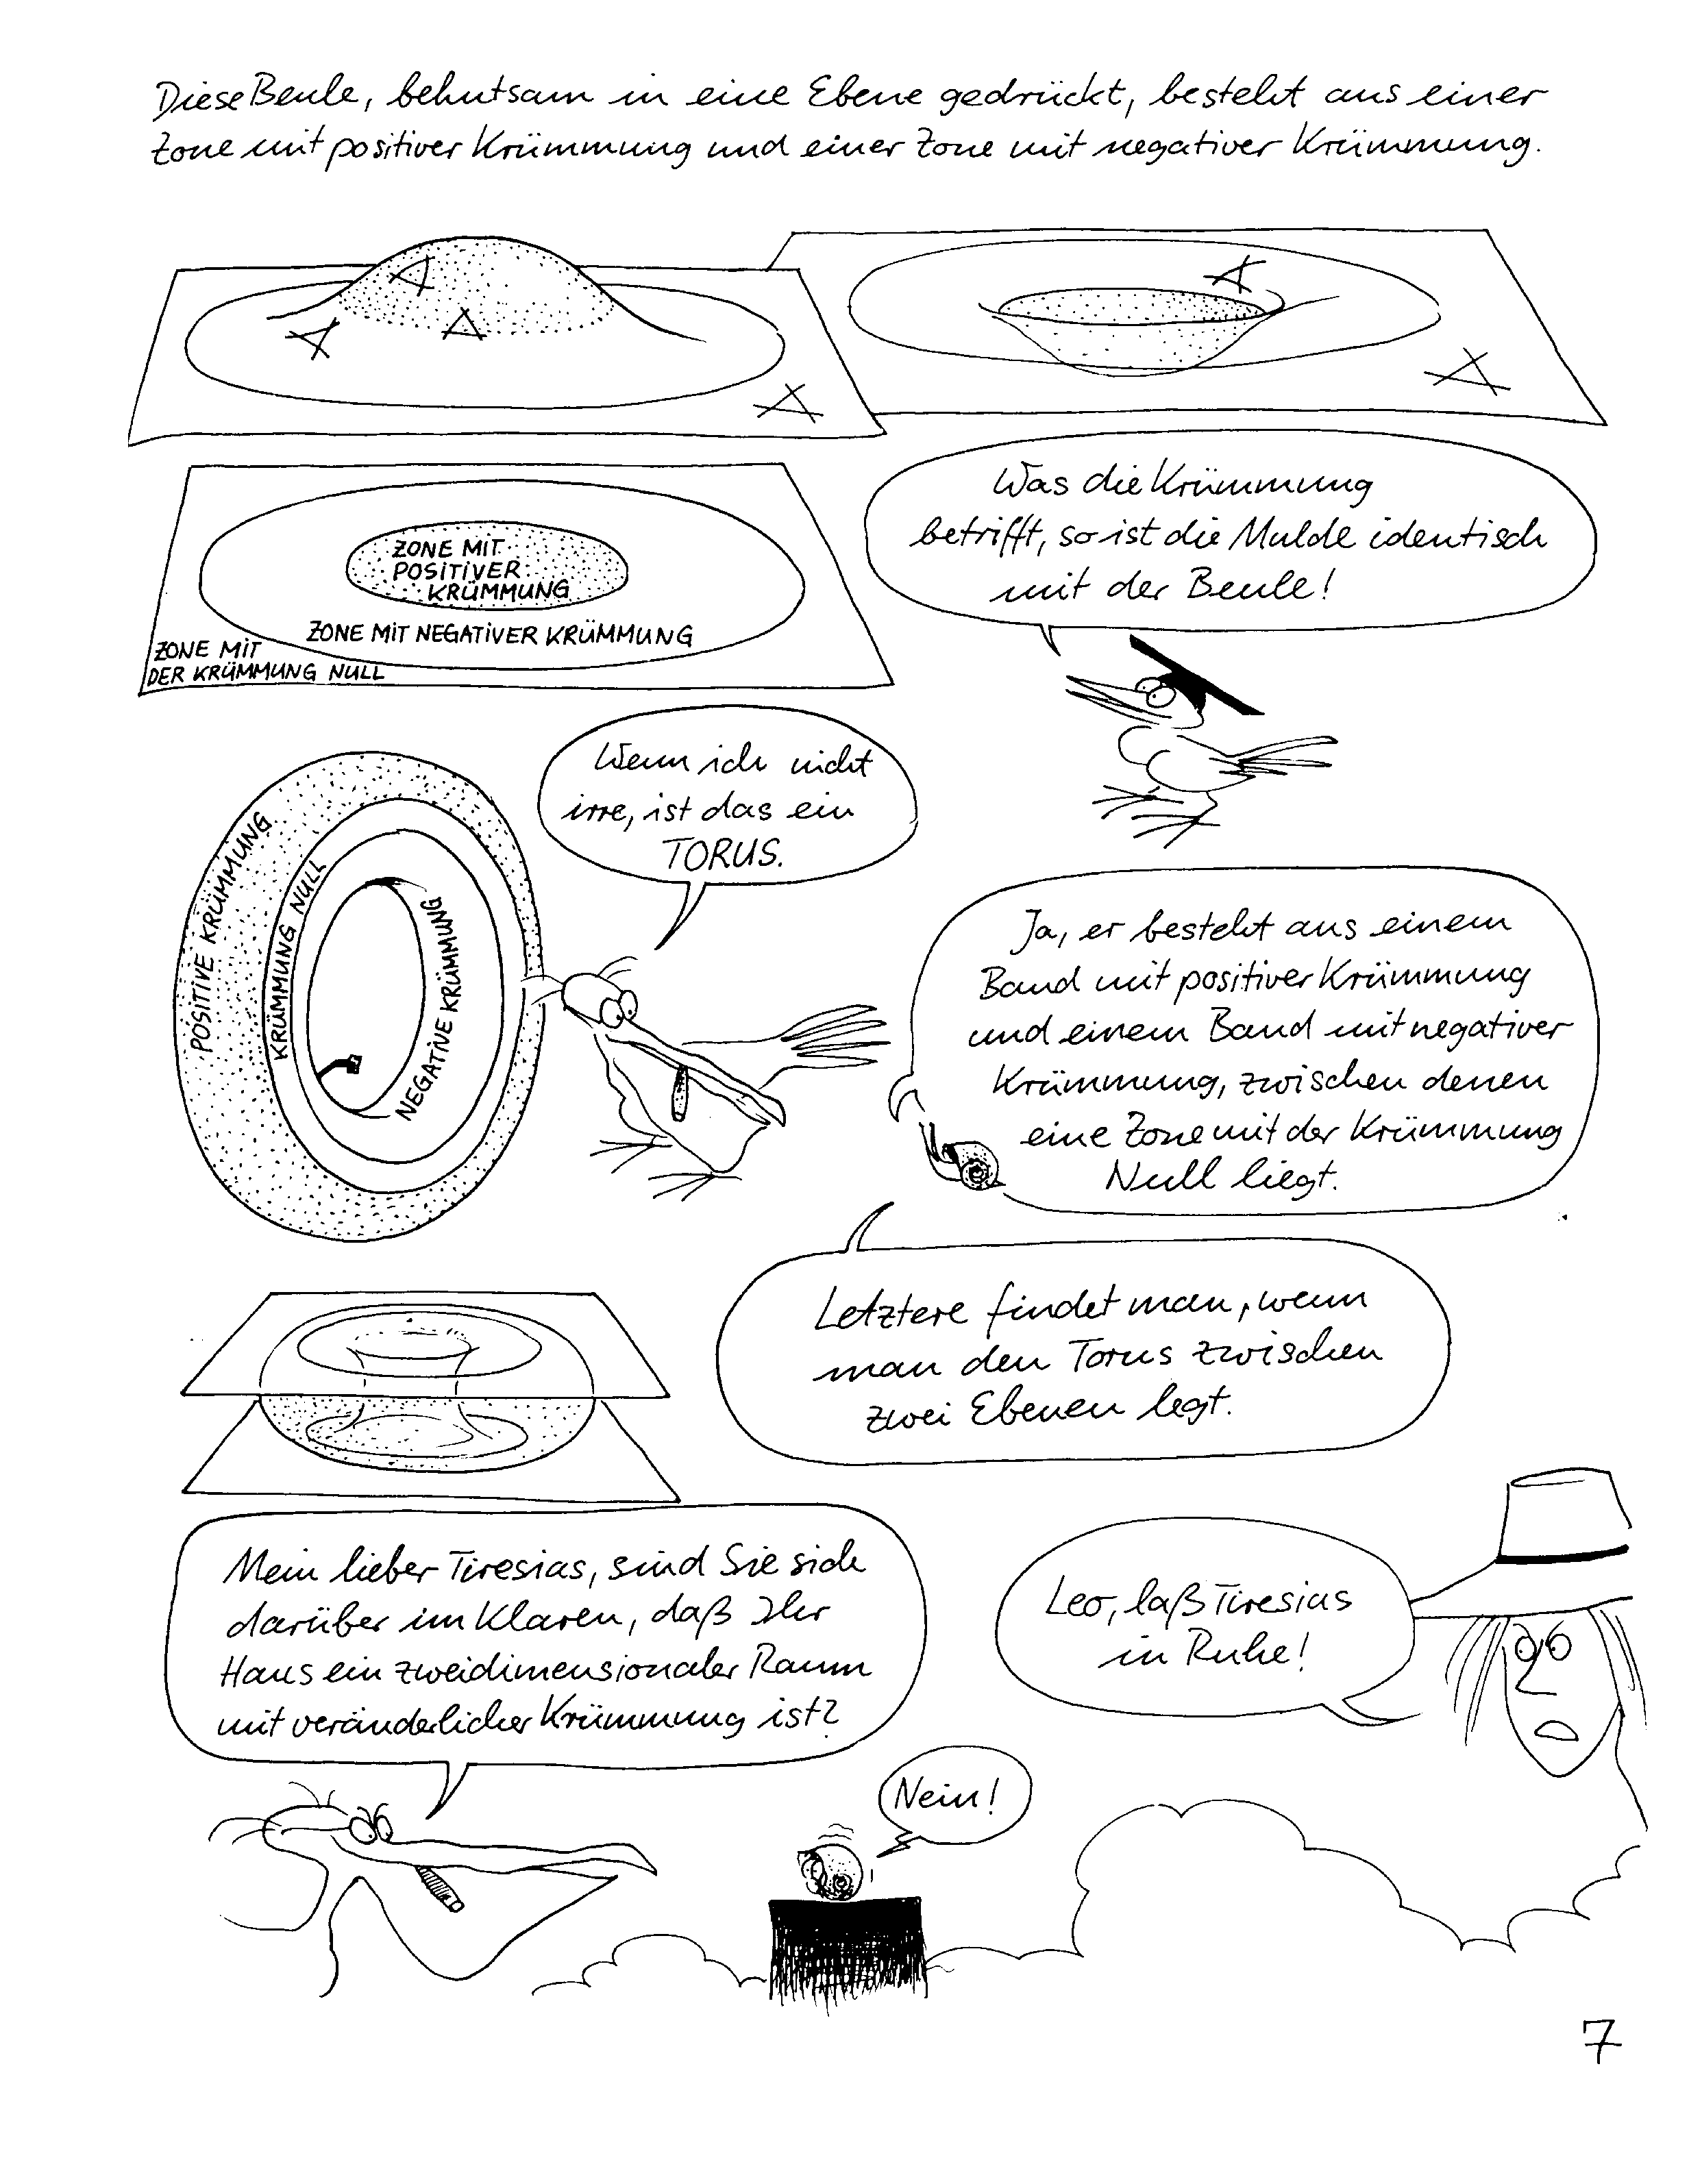 Diese Beule, behutsam in eine Ebene gedrückt, besteht aus einer
Zone mit positiver Krümmung und einer Zone mit negativer Krümmung.
ZONE MIT
POSITIVER
KRÜMMUNG
ZONE MIT NEGATIVER KRÜMMUNG
ZONE MIT
DER KRÜMMUNG NULL
Was die Krümmung
betrifft, so ist die Mulde identisch
mit der Beule!
Wenn ich nicht
irre, ist das ein
TORUS.
POSITIVE KRÜMMUNG
KRÜMMUNG NULL
NEGATIVE KRÜMMUNG
Ja, er besteht aus einem
Band mit positiver Krümmung
und einem Band mit negativer
Krümmung, zwischen denen
eine Zone mit der Krümmung
Null liegt.
Letztere findet man, wenn
man den Torus zwischen
zwei Ebenen legt.
Mein lieber Tiresias, sind Sie sich
darüber im Klaren, daß Ihr
Haus ein zweidimensionaler Raum
mit veränderlicher Krümmung ist?
Leo, laß Tiresias
in Ruhe!
Nein!
7